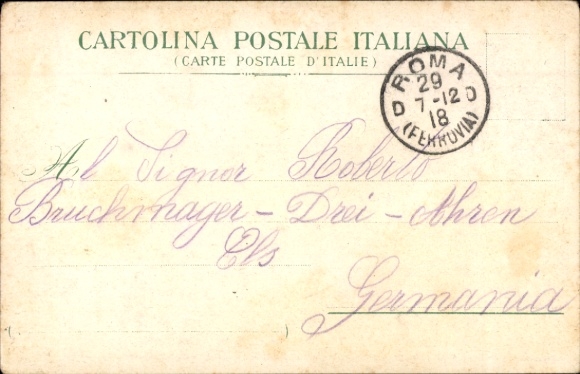 CARTOLINA POSTALE ITALIANA
(CARTE POSTALE D'ITALIE)
ROMA
29
D 7-12 D
18
(FERROVIA)
Al Signor Roberto
Bruchmager - Drei - Ahren
Els
Germania